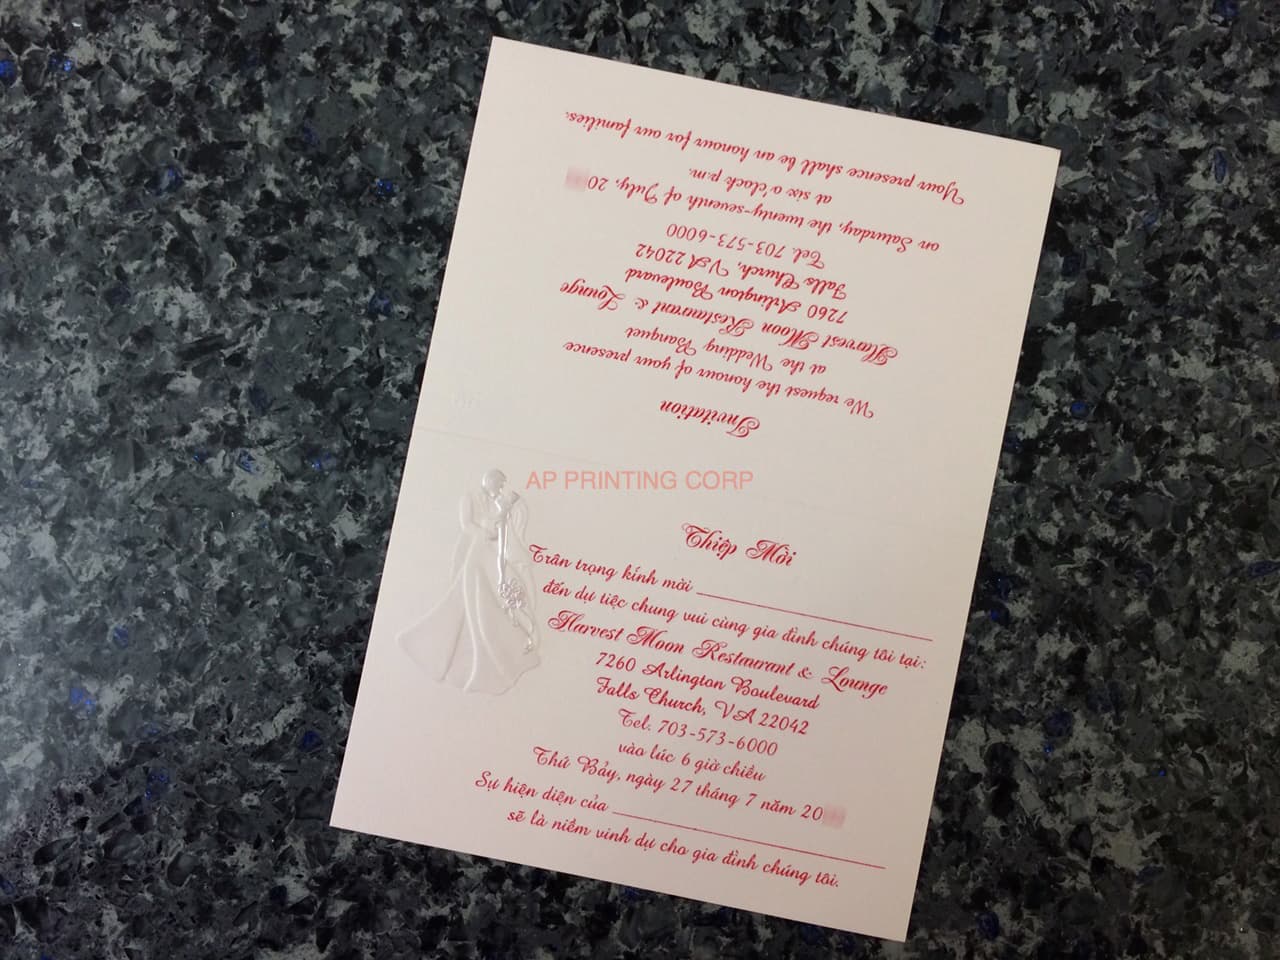 Invitation
We request the honour of your presence
at the Wedding Banquet
Harvest Moon Restaurant & Lounge
7260 Arlington Boulevard
Falls Church, VA 22042
Tel. 703-573-6000
on Saturday, the twenty-seventh of July, 20
at six o'clock p.m
Your presence shall be an honour for our families.
AP PRINTING CORP
Thiệp Mời
Trân trọng kính mời
đến dự tiệc chung vui cùng gia đình chúng tôi tại:
Harvest Moon Restaurant & Lounge
7260 Arlington Boulevard
Falls Church, VA 22042
Tel. 703-573-6000
vào lúc 6 giờ chiều
Thứ Bảy, ngày 27 tháng 7 năm 20
Sự hiện diện của
sẽ là niềm vinh dự cho gia đình chúng tôi.